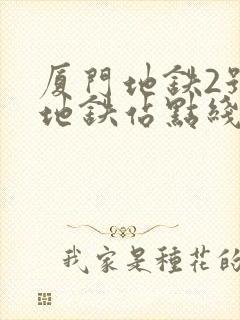 厦門地鉄2
地鉄佔點綫
我家是種花的